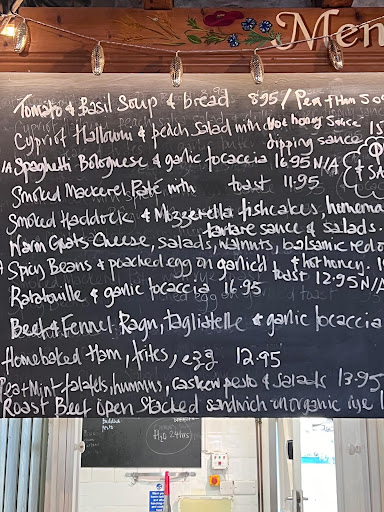 Men
Tomato & Basil Soup & bread 8.95 / Pea & Ham So
Cypriot Halloumi & peach Salad with Hot honey Sauce 15
dipping sauce
Spaghetti Bolognese & garlic focaccia 16.95 N/A
Smoked Mackerel Pate with toast 11.95
& SA
Smoked Haddock & Mozzerella fishcakes, homema
tartare sauce & salads.
Warm Goats Cheese, salads, walnuts, balsamic red o
Spicy Beans & poached egg on garlic & hot honey. 1
toast 12.95 N/A
Ratatouille & garlic focaccia 16.95
Beef & Fennel Ragu, tagliatelle & garlic focaccia
Homebaked Ham, frites, egg 12.95
Pea & Mint falafels, hummus, Cashew pesto & Salads 13.95
Roast Beef open Stacked sandwich on organic rye 1
H2O 24hrs